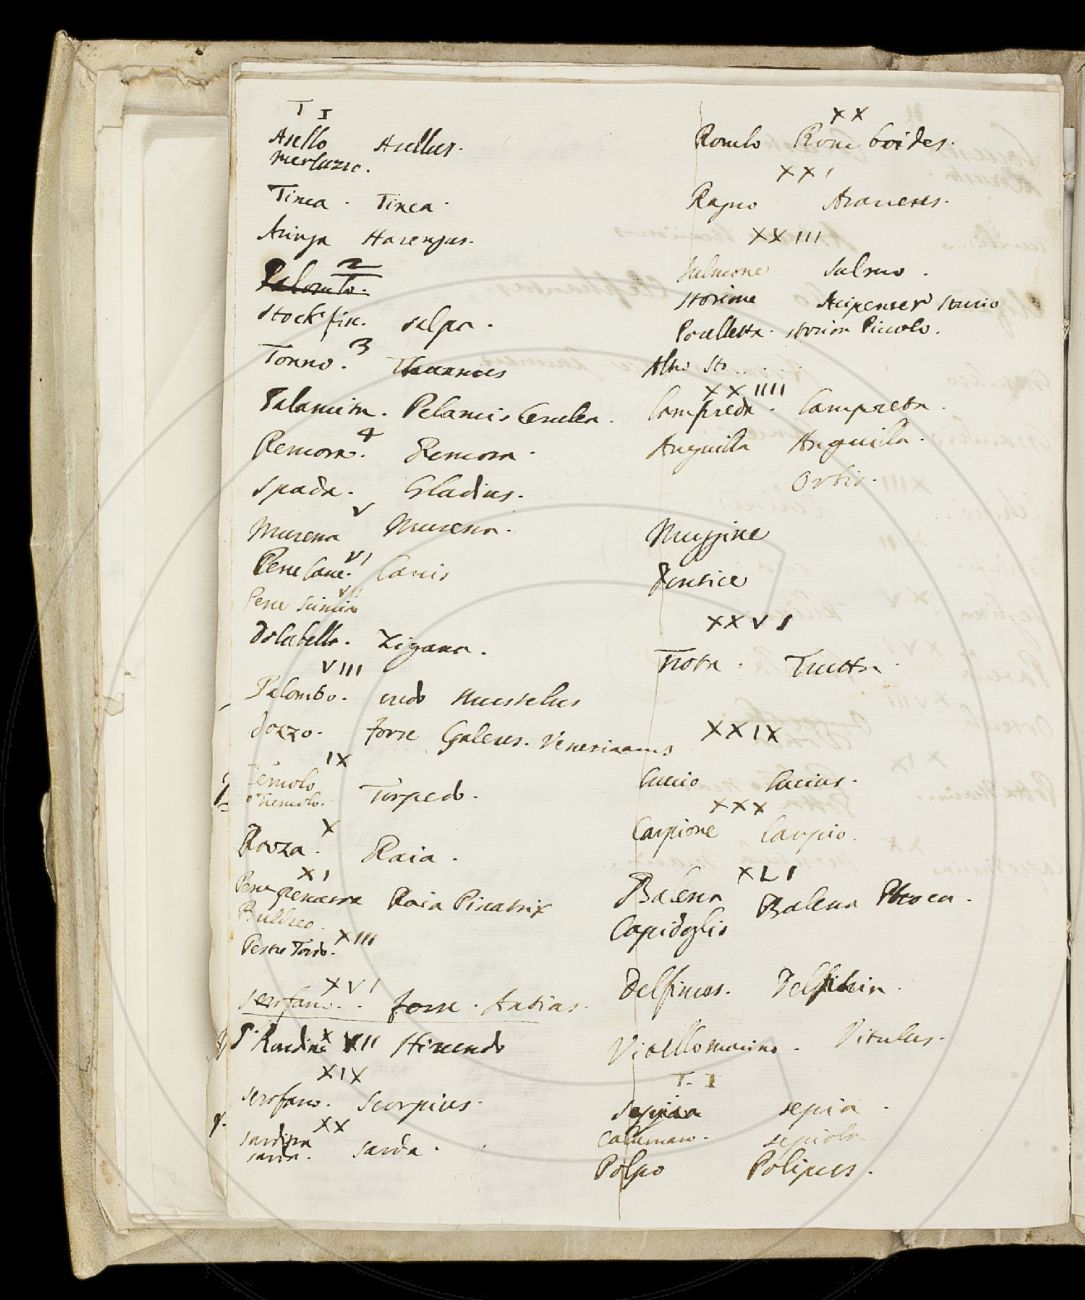 T I
Asello Asellus.
merluzio.
Tinca. Tinca.
Aringa Harengus.
2
Palombo.
Stockfis. salpa.
3
Tonno. Thunnus
Palamita. Pelamis Cerulea.
4
Remora. Remora.
Spada. Gladius.
V
Murena Murena.
VI
Pesce Cane. Canis
VII
Pesce
Zigana.
VIII
Palombo. Mustelus
forse Galeus. Venerianus
IX
Tremolo. Torpedo.
X
Razza. Raia.
XI
Raia Piscatrix
XIII
XVI
Scrofano. forse. Antias.
P. Rondine XVII Hirundo
XIX
Scrofano. Scorpius.
XX
Sardina
sarda. Sarda.
XX
Rombo Romboides.
XXI
Ragno Araneus.
XXIII
Salmone Salmo.
Storione Acipenser Sturio
Porcelletta. storion Piccolo.
XXIIII
Lampreda. Lampreta.
Anguilla Anguilla.
Muggine
Dentice
XXVI
Trota. Trutta.
XXIX
Luccio Lucius.
XXX
Carpione Carpio.
XLI
Balena Balena Phoca.
Capidoglio
Delfinus. Delphin.
Vitello marino. Vitulus.
T. I
Seppia sepia.
Calamaro. sepiola
Polpo Polipus.